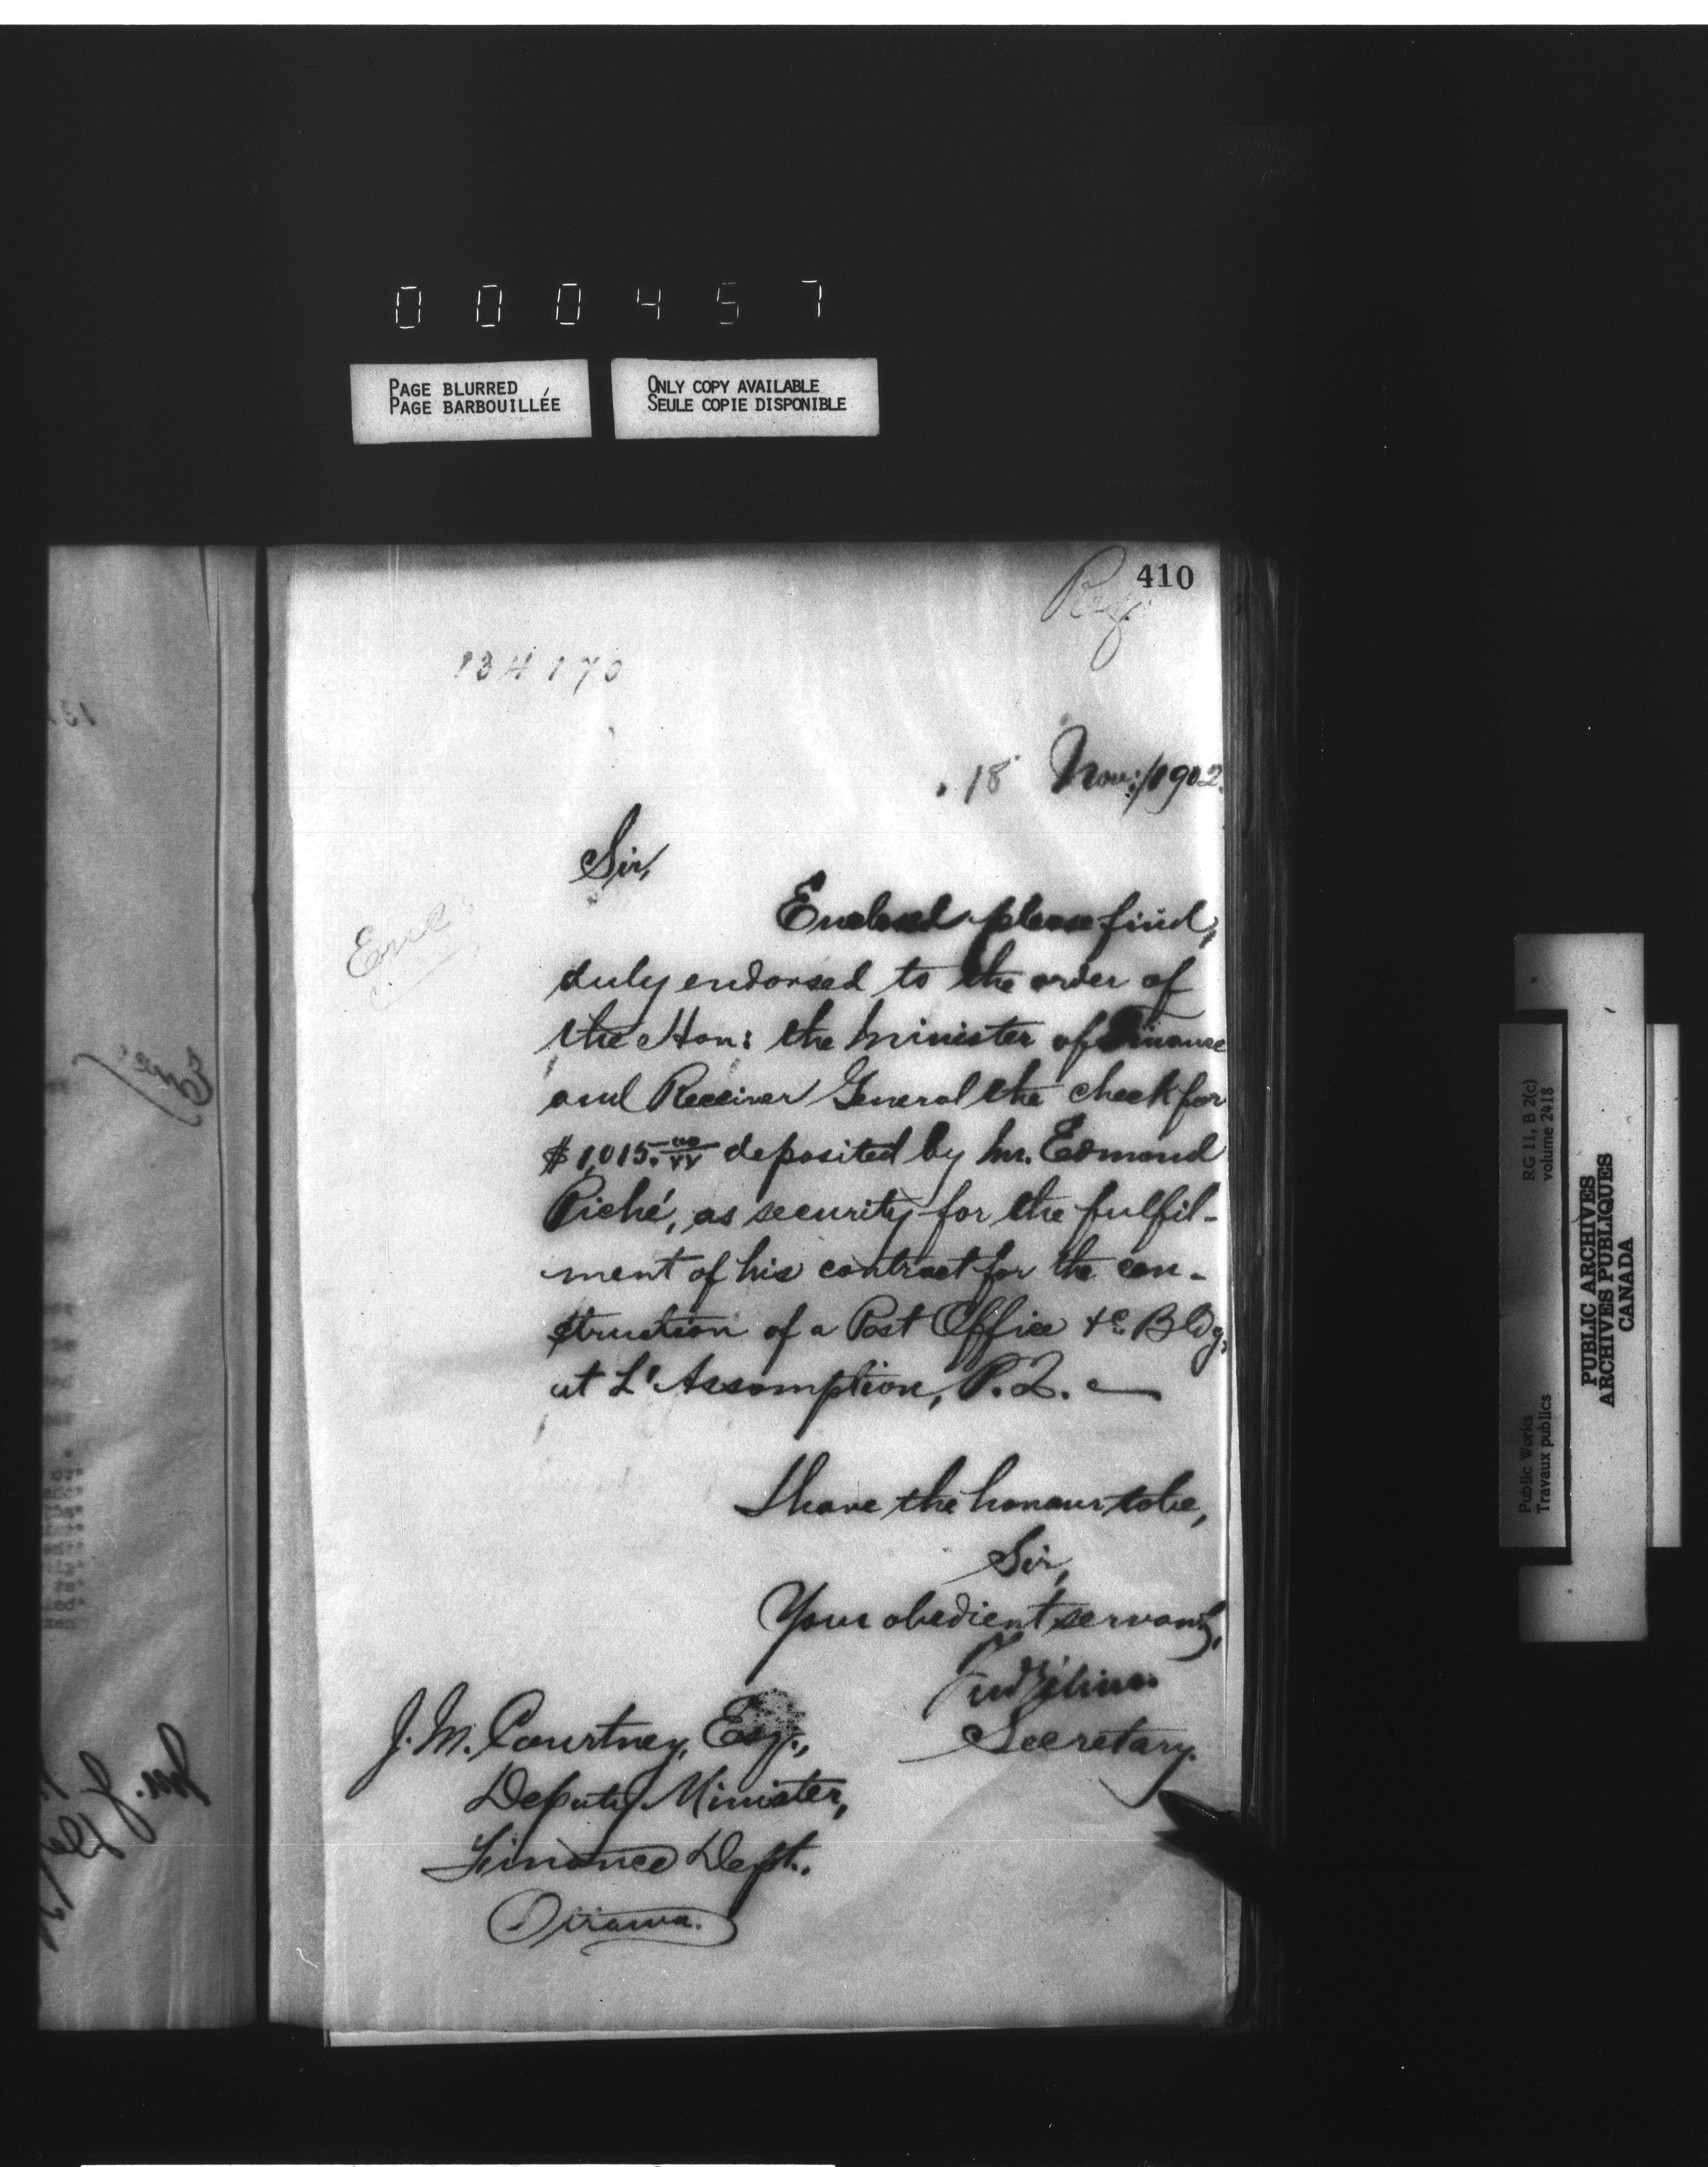 000457
PAGE BLURRED
PAGE BARBOUILLÉE
ONLY COPY AVAILABLE
SEULE COPIE DISPONIBLE
410
Reg.
134170
18 Nov:/1902.
Sir,
Encl
Enclosed please find,
duly endorsed to the order of
the Hon: the Minister of Finance
and Receiver General the check for
$1,015.00/xx deposited by Mr. Edmond
Piché, as security for the fulfil-
ment of his contract for the con-
struction of a Post Office &c. Bldg.
at L'Assomption, P.Q.
I have the honour to be,
Sir,
Your obedient servant,
Secretary.
J. M. Courtney, Esq.,
Deputy Minister,
Finance Dept.,
Ottawa.
Public Works
Travaux publics
RG 11, B 2(c)
volume 2418
PUBLIC ARCHIVES
ARCHIVES PUBLIQUES
CANADA